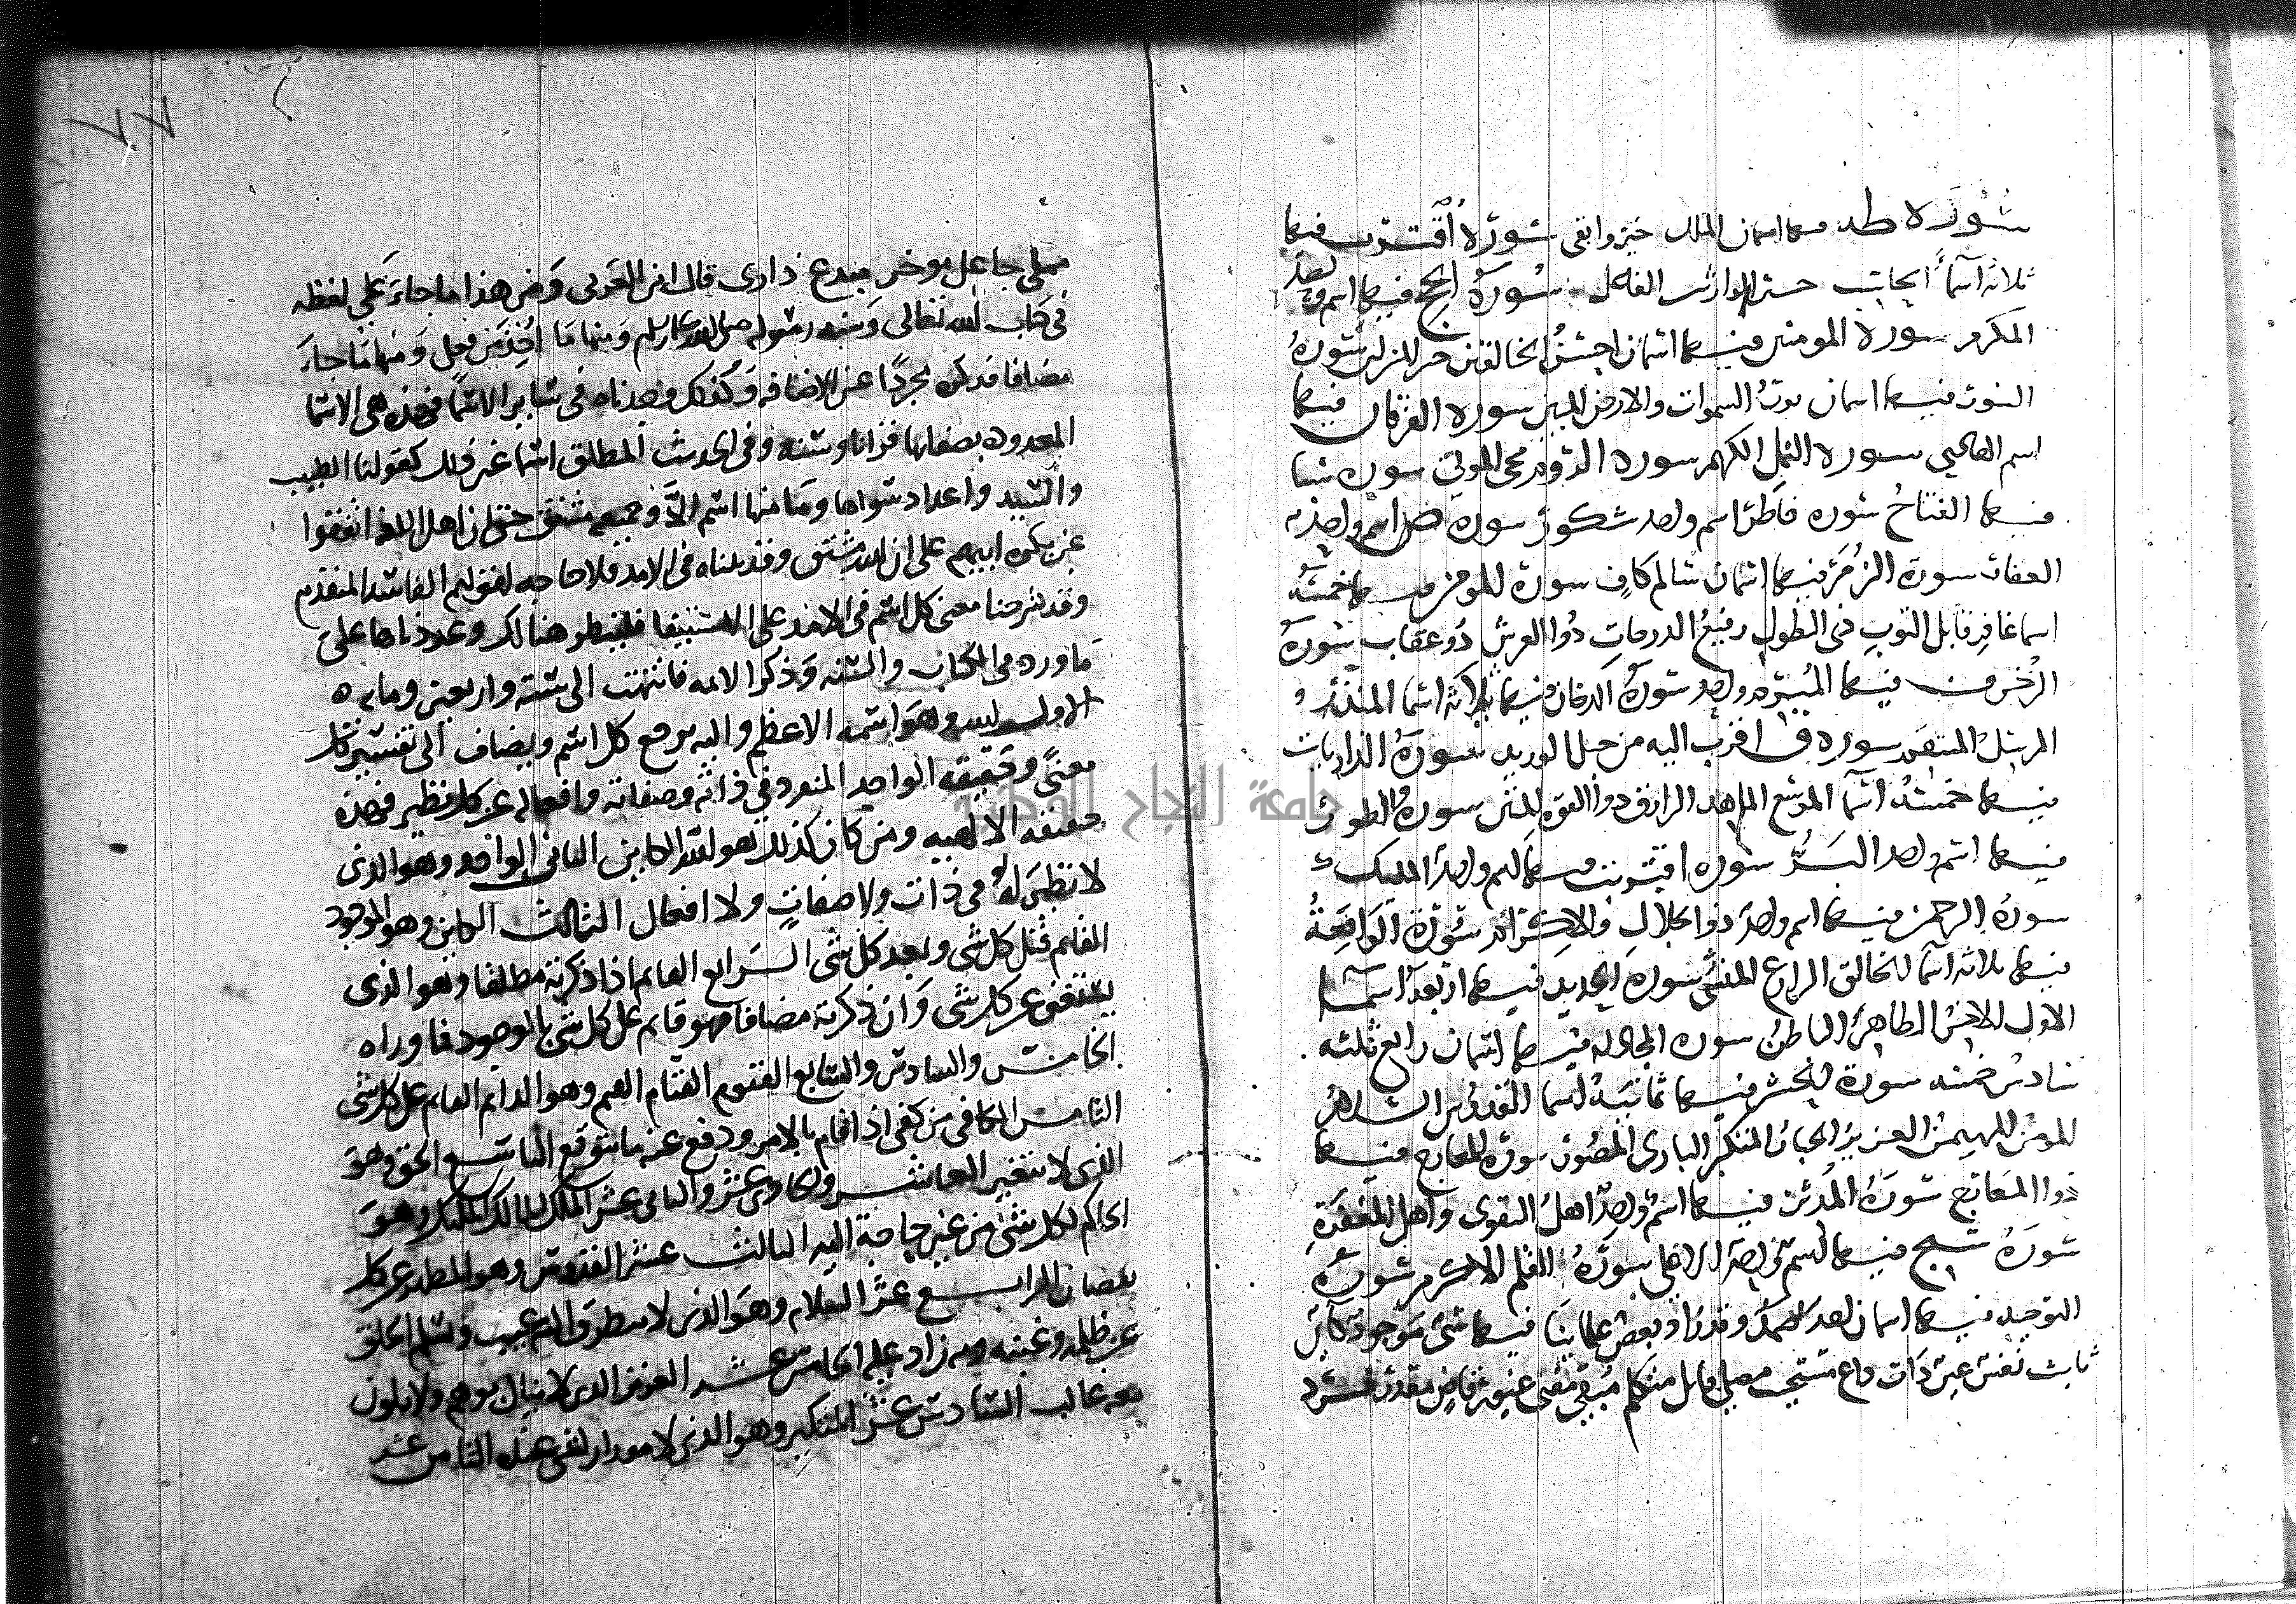 سورة طه فيها اسمان الملك خير وابقى سورة اقتربت فيها
ثلاثة اسما الحاسب خير الوارثين الفاعل سورة الحج فيها اسم واحد
المكرم سورة المومنين فيها اسمان احسن الخالقين خير المنزلين سورة
النور فيها اسمان نور السموات والارض المبين سورة الفرقان فيها
اسم الهادي سورة النمل الكريم سورة الروم محي الموتى سورة سبا
فيها الفتاح سورة فاطر اسم واحد شكور سورة ص اسم واحد
الغفار سورة الزمر فيها اسمان سالم كاف سورة المومن فيها خمسة
اسما غافر قابل التوب ذي الطول رفيع الدرجات ذوا العرش ذو عقاب سورة
الزخرف فيها المبرم واحد سورة الدخان فيها ثلاثة اسما المنذر و
المرسل المنتقم سورة ق اقرب اليه من حبل الوريد سورة الذاريات
فيها خمسة اسما الموسع الماهد الرازق ذوا القوة المتين سورة والطور
فيها اسم واحد البر سورة اقتربت فيها اسم واحد المليك
سورة الرحمن فيها اسم واحد ذوا الجلال والاكرام سورة الواقعة
فيها ثلاثة اسما الخالق الزارع المنشي سورة الحديد فيها اربعة اسما
الاول الاخر الظاهر الباطن سورة المجادلة فيها اسمان رابع ثلثه
سادس خمسه سورة الحشر فيها ثمانية اسما القدوس السلام
المومن المهيمن العزيز الجبار المتكبر الباري المصور سورة المعارج فيها
ذوا المعارج سورة المدثر فيها اسم واحد اهل التقوى واهل المغفرة
سورة سبح فيها اسم واحد الاعلى سورة القلم الاكرم سورة
التوحيد فيها اسمان احد الصمد وقد زاد بعض علماينا فيها شي موجود كاين
ثابت نفس عين ذات داع مستجيب مملي قايل متكلم مبقي مغني غيور قاض مقدر فرد
مملي جاعل موخر مبدع ذاري قال ابن العربي ومن هذا ما جاء على لفظه
في كتاب الله تعالى وسنة رسوله صلى الله عليه وسلم ومنها ما اخذ من فعل ومنها ما جاء
مضافا فذكر مجردا عن الاضافة وكذلك وجدناه في ساير الاسما فهذه هي الاسما
المعدودة بصفاتها قرانا وسنة وفي الحديث المطلق اسما غير ذلك كقولنا الطبيب
والسيد واعداد سواها وما منها اسم الا وجميعه مشتق حتى ان اهل اللغة اتفقوا
عن بكرة ابيهم على ان الله مشتق وقد بيناه في الامد فلا حاجة لقولهم الفاسد المتقدم
وقد شرحنا معنى كل اسم في الامد على الاستيفا فلينظر هنالك وعددناها على
ما ورد في الكتاب والسنة وذكر الايمة فانتهت الى ستة واربعين وماية
الاول الله وهو اسمه الاعظم واليه يرجع كل اسم ويضاف الى تفسيره كل
معنى وحقيقته الواحد المنفرد في ذاته وصفاته وافعاله عن كل نظير فهذه
حقيقة الالهية ومن كان كذلك فهو الله الكاين الثاني الواحد وهو الذي
لا نظير له في ذات ولا صفات ولا افعال الثالث الكاين وهو الموجود
القايم قبل كل شي وبعد كل شي الرابع القايم اذا ذكرته مطلقا وهو الذي
يستغني عن كل شي وان ذكرته مضافا فهو قايم على كل شي بالوجود فما وراه
الخامس والسادس والسابع القيوم القيام القيم وهو الدايم القايم على كل شي
الثامن الكافي من كفى اذا قام بالامر ودفع عنه ما يتوقع التاسع الحق وهو
الذي لا يتغير العاشر والحادي عشر والثاني عشر الملك المالك المليك وهو
الحاكم لكل شي من غير حاجة اليه الثالث عشر القدوس وهو المطهر عن كل
نقصان الرابع عشر السلام وهو الذي لا يتطرق اليه عيب وسلم الخلق
عن ظلمه وغبنه وبه زاد عليه الخامس عشر العزيز الذي لا ينال بوهم ولا يكون
معه غالب السادس عشر المتكبر وهو الذي لا مقدار لغيره عنده الثامن عشر
جامعة النجاح الوطنية
٧٧